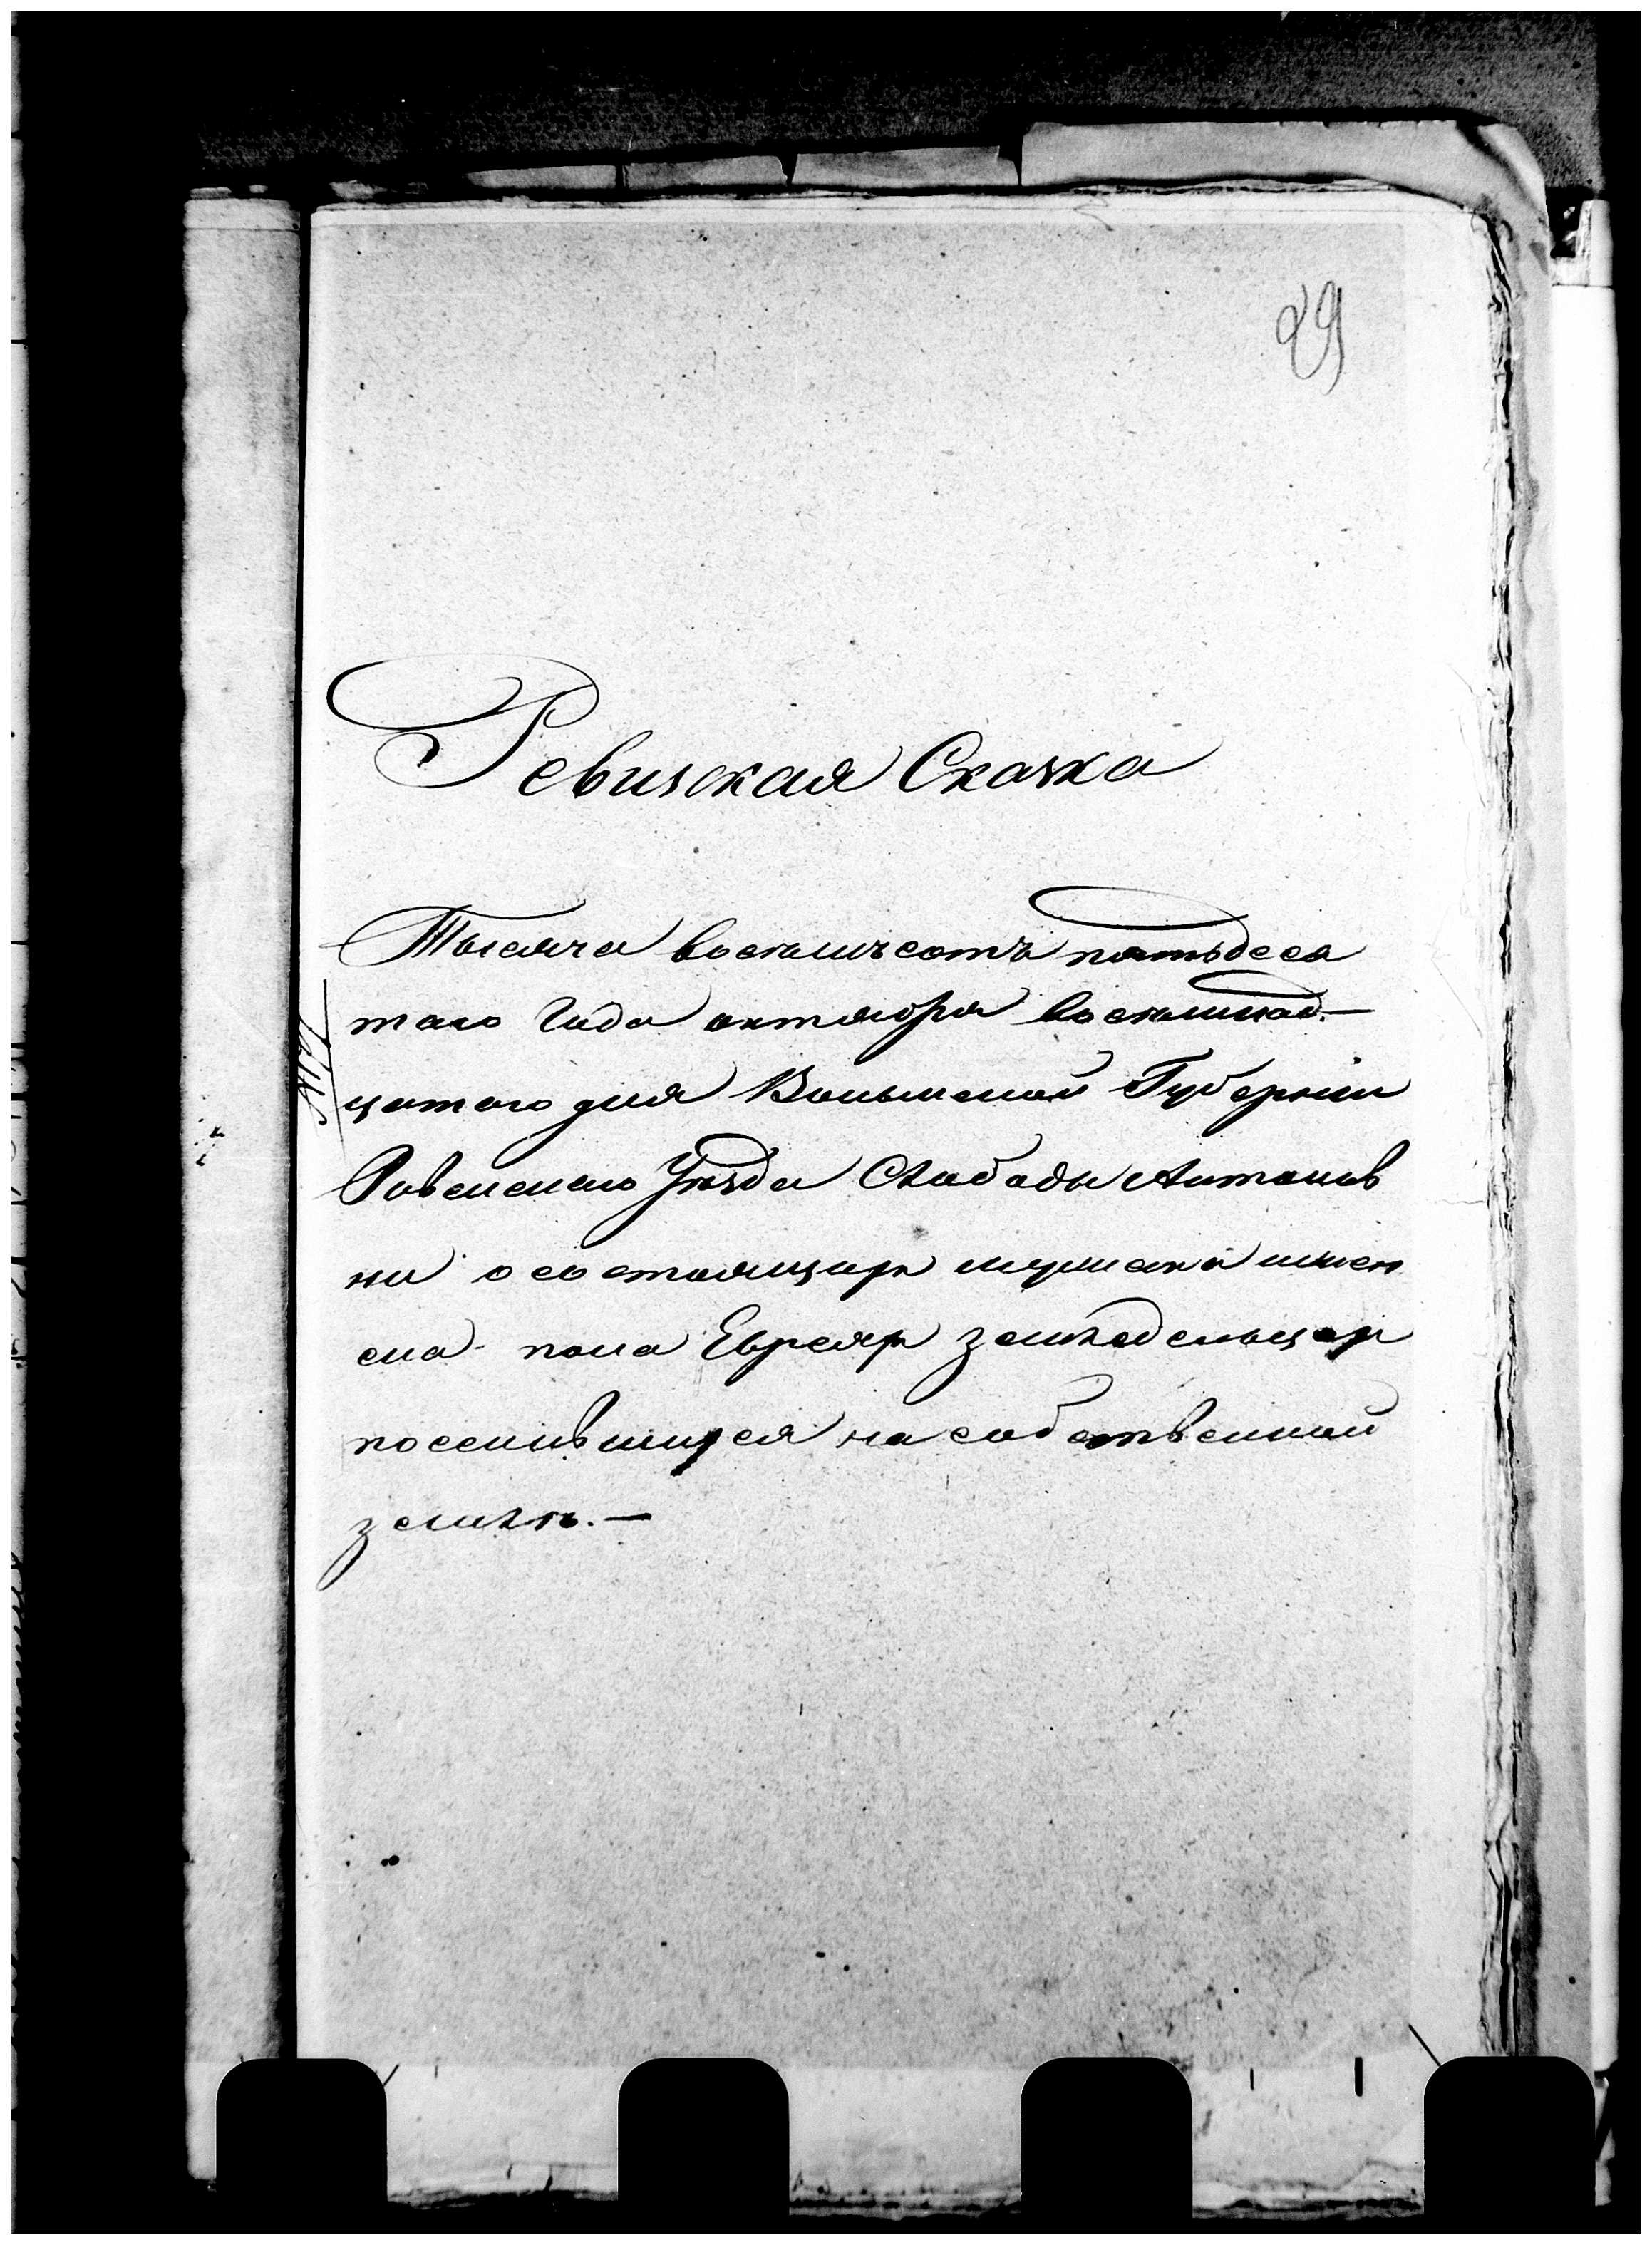 29
Ревизская Сказка
Тысяча восемьсотъ пятьдеся
таго Года октября восемнад.—
цатаго дня Волынской Губерніи
Ровенскаго Уѣзда Слободы Антонов
ки о состоящихъ мужеска и женс
ка пола Евреяхъ земледельцах
поселившихся на собственной
землѣ.—